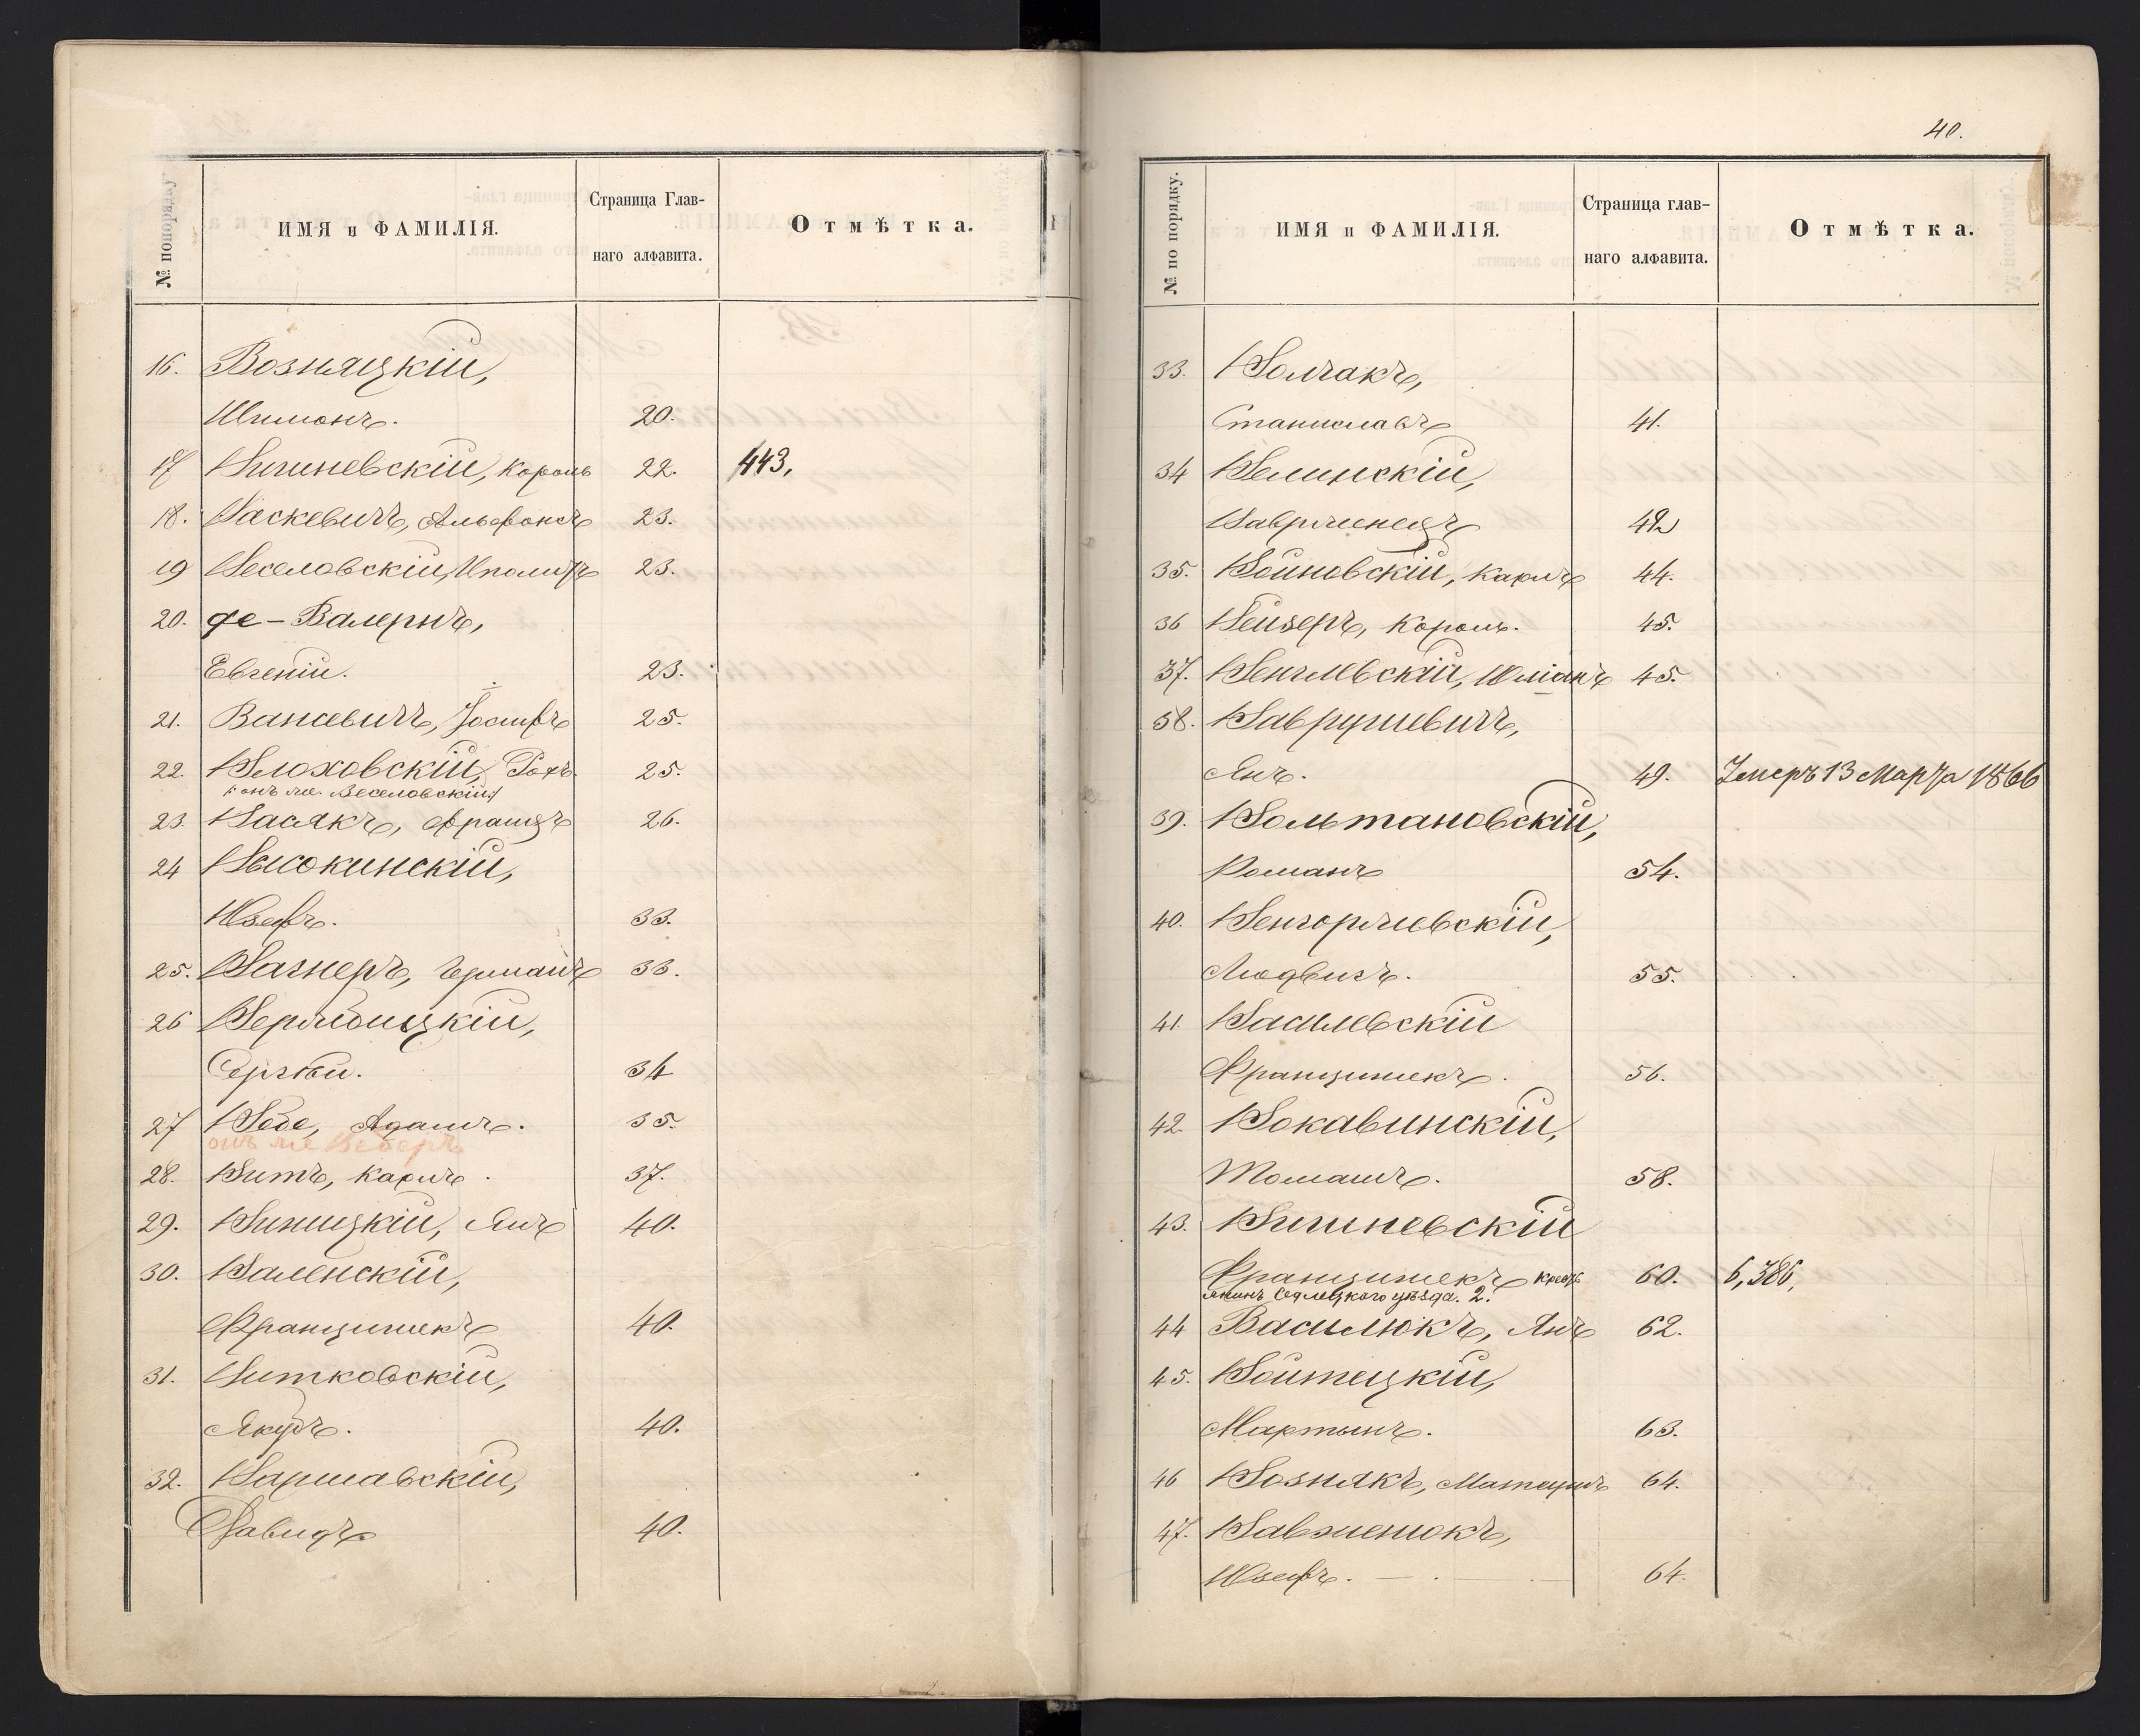 № попорядку.
ИМЯ и ФАМИЛІЯ.
Страница Глав-
наго алфавита.
Отмѣтка.
16. Возняцкій,
Шимонъ. 20.
17 Вишневскій, Кароль 22. 443,
18. Васкевичъ, Альфонсъ 23.
19 Веселовскій, Иполитъ 23.
20. де-Валернъ,
Евгеній. 23.
21. Вансевичъ, Іосифъ 25.
22. Влоховскій, Рохъ. 25.
онъ же Веселовскій
23. Васякъ, Францъ 26.
24 Высокинскій,
Юзефъ. 33.
25. Вагнеръ, Германъ 33.
26 Вержбицкій,
Сергѣй. 34
27 Вебе, Адамъ. 35.
онъ же Веберъ
28. Витъ, Карлъ. 37.
29. Виницкій, Янъ 40.
30. Валенскій,
Францишекъ 40.
31. Витковскій,
Якубъ. 40.
32. Варшавскій,
Давидъ 40.
40.
№ по порядку.
ИМЯ и ФАМИЛІЯ.
Страница глав-
наго алфавита.
Отмѣтка.
33. Волчакъ,
Станиславъ 41.
34 Велинскій,
Вавржинецъ 42
35. Войновскій, Карлъ 44.
36 Вейзеръ, Кароль. 45.
37. Венглевскій, Юліанъ 45.
38.Ваврушевичъ,
Янъ. 49. Умеръ 13 Марта 1866
39. Вольтановскій,
Романъ 54.
40. Венгоржевскій,
Людвигъ. 55.
41. Василевскій
Францишекъ. 56.
42. Вокавинскій,
Томашъ. 58.
43. Вишневскій
Францишекъ крест 60. 6,386,
янинъ Седлецкаго уѣзда. 2.
44 Василюкъ, Янъ 62.
45. Войтецкій,
Мартынъ. 63.
46 Вознякъ, Матеушъ 64.
47. Вавженюкъ,
Юзефъ. 64.